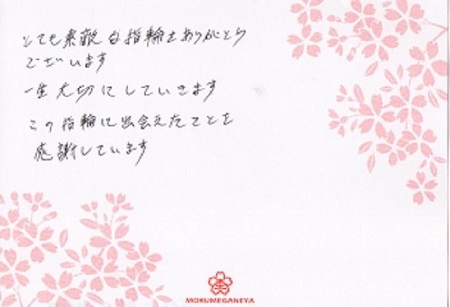 とても素敵な指輪をありがとう
ございます
一生大切にしていきます
この指輪に出会えたことを
感謝しています
MOKUMEGANEYA